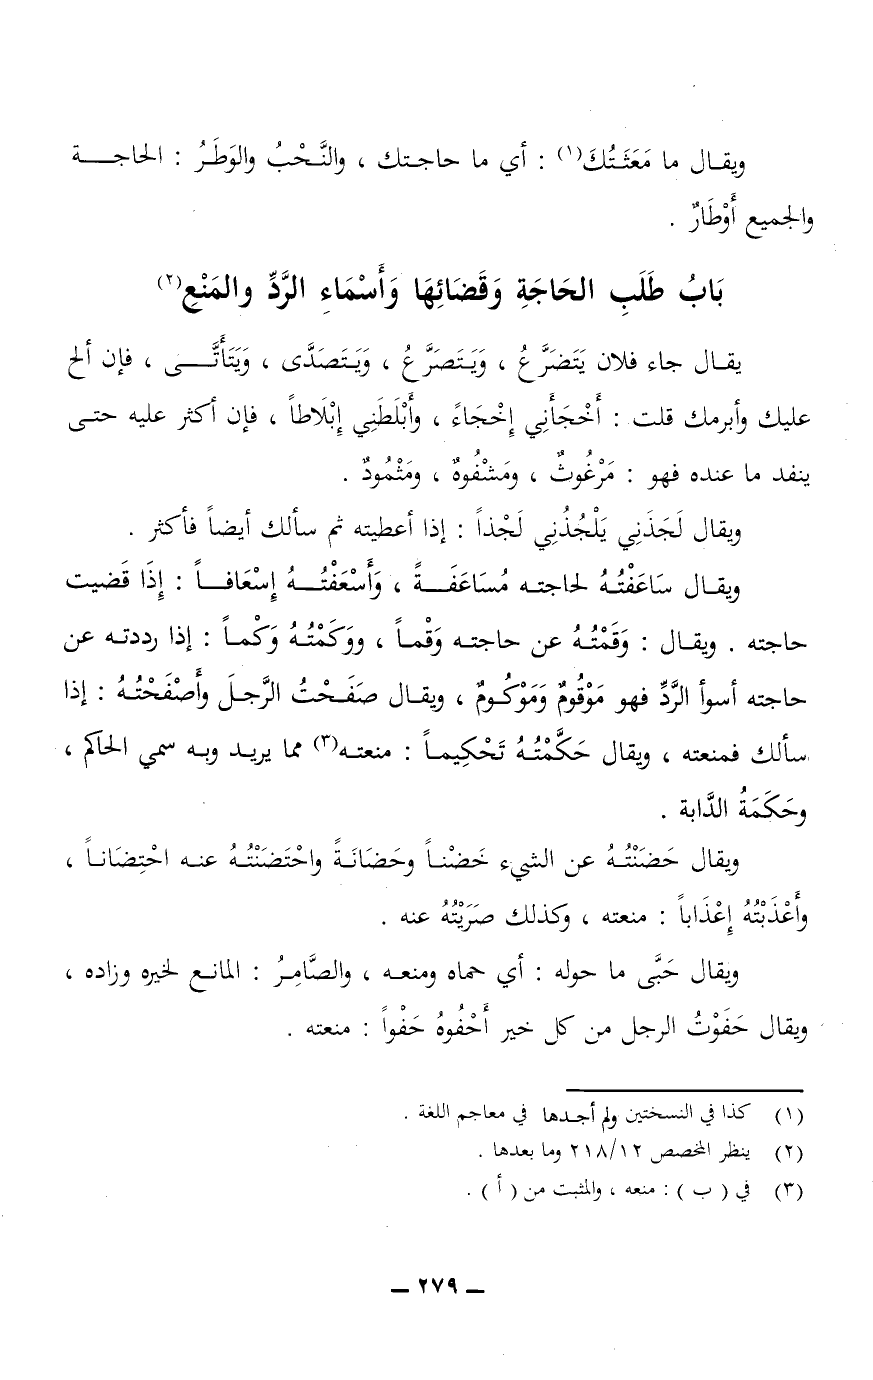 ويقال ما مَعَثَتُكَ(١) : أي ما حاجتك ، والنَّحْبُ والوَطَرُ : الحاجة
والجميع أَوْطَارٌ .
بَابُ طَلَبِ الحَاجَةِ وَقَضَائِهَا وَأَسْمَاءِ الرَّدِّ والمَنْعِ(٢)
يقال جاء فلان يَتَضَرَّعُ ، وَيَتَصَرَّعُ ، وَيَتَصَدَّى ، وَيَتَأَتَّى ، فإن ألح
عليك وأبرمك قلت : أَخْجَأَنِي إِخْجَاءً ، وأَبْلَطَنِي إِبْلَاطاً ، فإن أكثر عليه حتى
ينفد ما عنده فهو : مَرْغُوثٌ ، ومَشْفُوهٌ ، ومَثْمُودٌ .
ويقال لَجَذَنِي يَلْجُذُنِي لَجْذاً : إذا أعطيته ثم سألك أيضاً فأكثر .
ويقال سَاعَفْتُهُ لحاجته مُسَاعَفَةً ، وَأَسْعَفْتُهُ إِسْعَافاً : إِذَا قَضيت
حاجته . ويقال : وَقَمْتُهُ عن حاجته وَقْماً ، ووَكَمْتُهُ وَكْماً : إذا رددته عن
حاجته أسوأ الرَّدِّ فهو مَوْقُومٌ وَمَوْكُومٌ ، ويقال صَفَحْتُ الرَّجلَ وأَصْفَحْتُهُ : إذا
سألك فمنعته ، ويقال حَكَّمْتُهُ تَحْكِيماً : منعته(٣) مما يريد وبه سمي الحاكم ،
وحَكَمَةُ الدَّابة .
ويقال حَضَنْتُهُ عن الشيء حَضْناً وحَضَانَةً واحْتَضَنْتُهُ عنه احْتِضَاناً ،
وأَعْذَبْتُهُ إِعْذَاباً : منعته ، وكذلك صَرَيْتُهُ عنه .
ويقال حَبَّى ما حوله : أي حماه ومنعه ، والصَّامِرُ : المانع لخيره وزاده ،
ويقال حَفَوْتُ الرجل من كل خير أَحْفُوهُ حَفْواً : منعته .
(١) كذا في النسختين ولم أجدها في معاجم اللغة .
(٢) ينظر المخصص ٢١٨/١٢ وما بعدها .
(٣) في ( ب ) : منعه ، والمثبت من ( أ ) .
ــ ٢٧٩ ــ